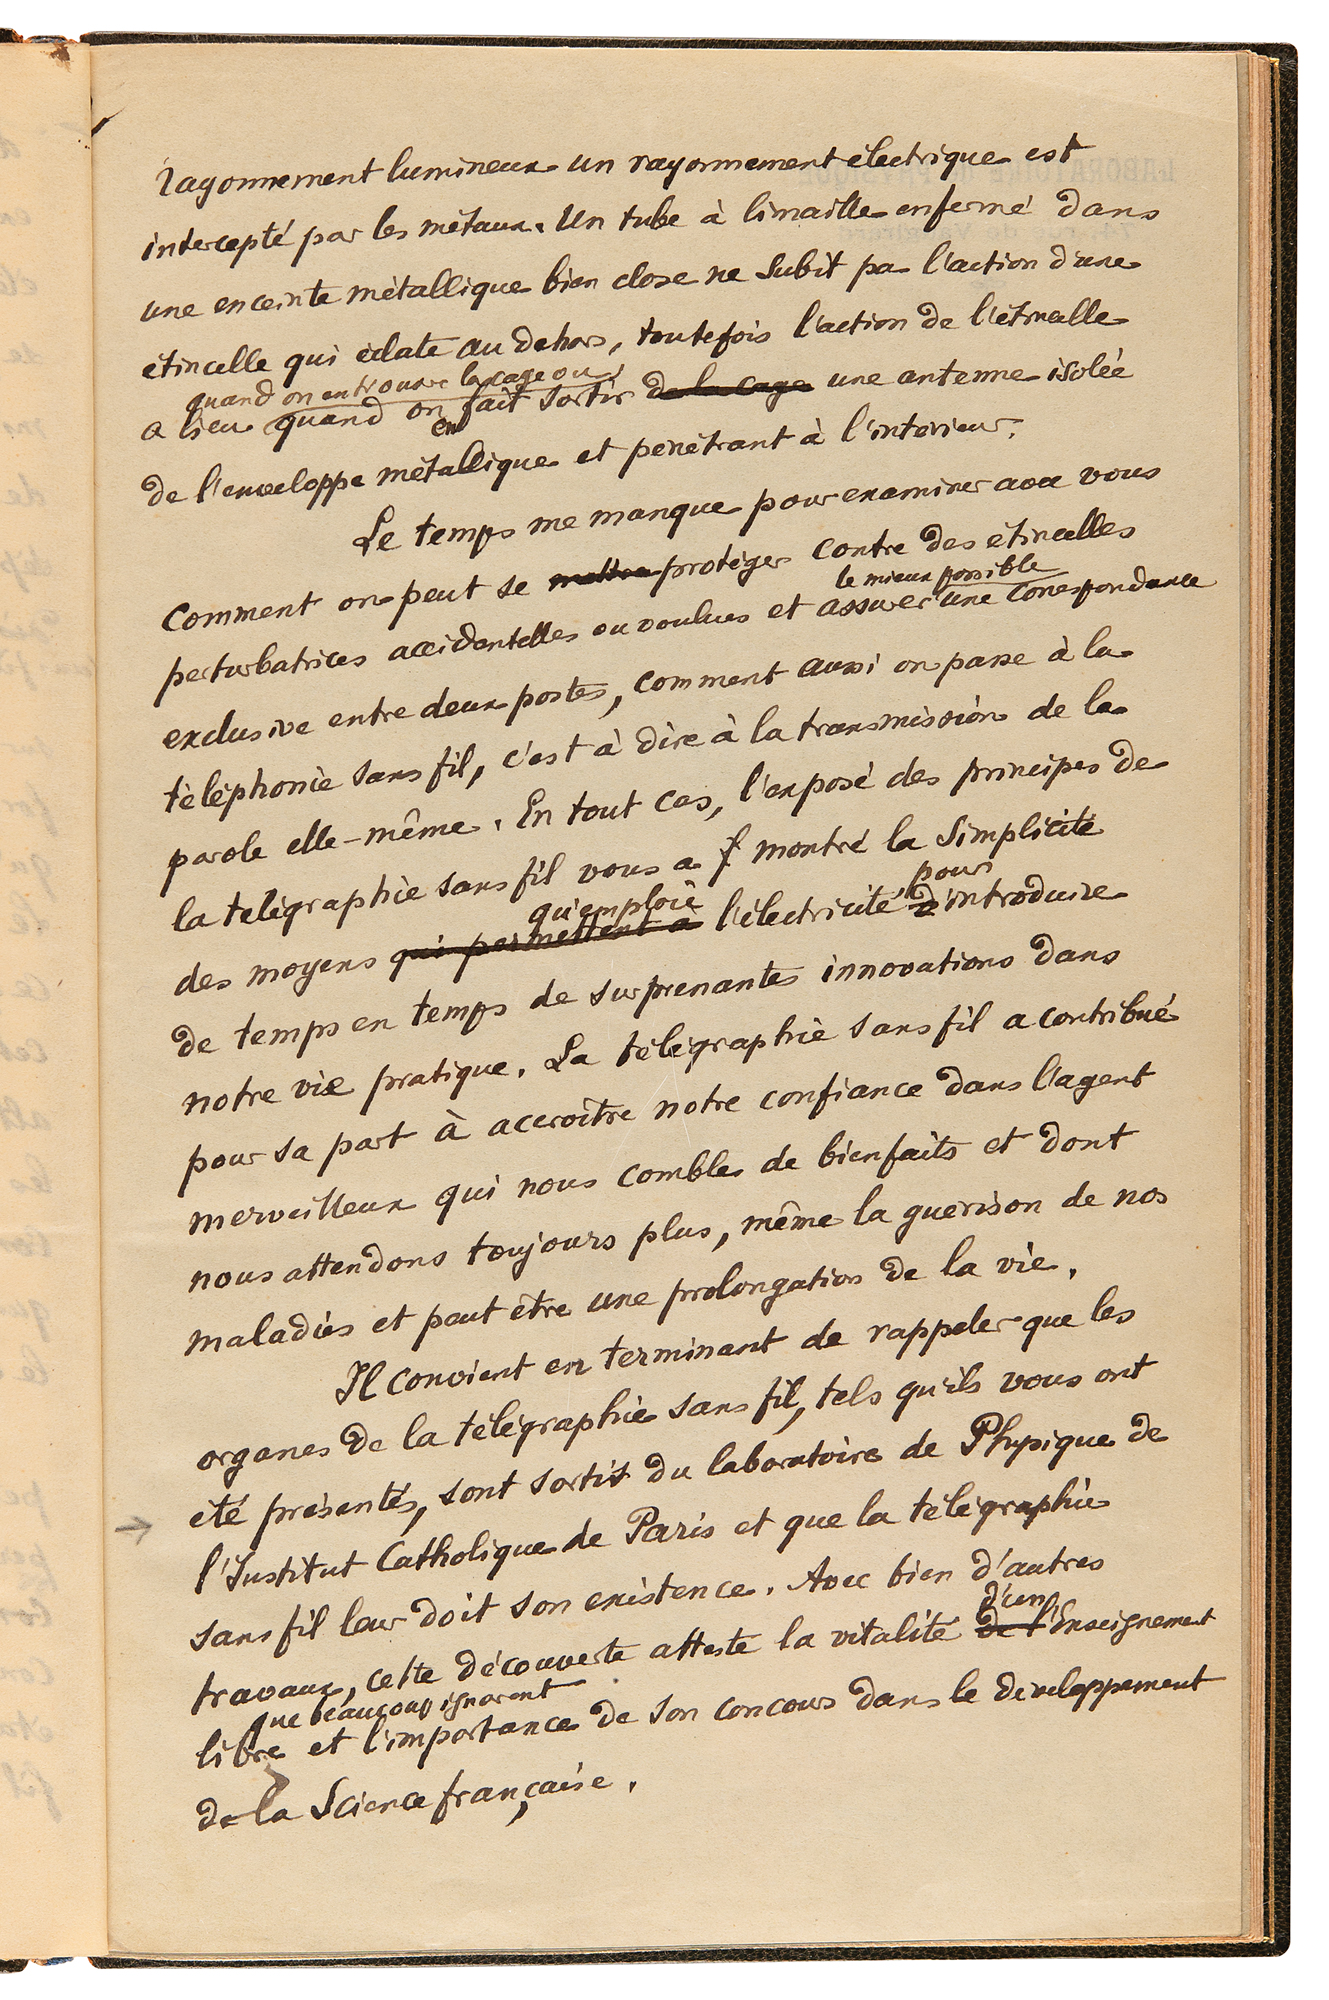 rayonnement lumineux un rayonnement électrique est
intercepté par les métaux. Un tube à limaille enfermé dans
une enceinte métallique bien close ne subit pas l'action d'une
étincelle qui éclate au dehors, toutefois l'action de l'étincelle
quand on entrouvre la cage ou
a lieu quand on fait sortir de la cage une antenne isolée
en
de l'enveloppe métallique et pénétrant à l'intérieur.
Le temps me manque pour examiner avec vous
comment on peut se mettre protéger contre des étincelles
le mieux possible
perturbatrices accidentelles ou voulues et assurer une correspondance
exclusive entre deux postes, comment aussi on passe à la
téléphonie sans fil, c'est à dire à la transmission de la
parole elle-même. En tout cas, l'exposé des principes de
la télégraphie sans fil vous a montré la simplicité
qu'emploie pour
des moyens qui permettent à l'électricité d'introduire
de temps en temps de surprenantes innovations dans
notre vie pratique. La télégraphie sans fil a contribué
pour sa part à accroître notre confiance dans l'agent
merveilleux qui nous comble de bienfaits et dont
nous attendons toujours plus, même la guérison de nos
maladies et peut être une prolongation de la vie.
Il convient en terminant de rappeler que les
organes de la télégraphie sans fil, tels qu'ils vous ont
été présentés, sont sortis du laboratoire de Physique de
l'Institut Catholique de Paris et que la télégraphie
sans fil leur doit son existence. Avec bien d'autres
d'un
travaux, cette découverte atteste la vitalité de l'Enseignement
que beaucoup ignorent
libre et l'importance de son concours dans le développement
de la Science française.